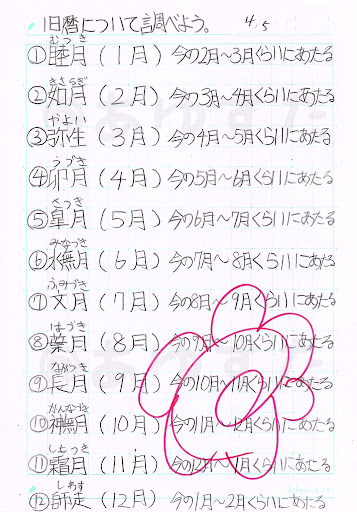 旧暦について調べよう。 4.5
むつき
①睦月(1月) 今の2月〜3月くらいにあたる
きさらぎ
②如月(2月) 今の3月〜4月くらいにあたる
やよい
③弥生(3月) 今の4月〜5月くらいにあたる
うづき
④卯月(4月) 今の5月〜6月くらいにあたる
さつき
⑤皐月(5月) 今の6月〜7月くらいにあたる
みなづき
⑥水無月(6月) 今の7月〜8月くらいにあたる
ふみづき
⑦文月(7月) 今の8月〜9月くらいにあたる
はづき
⑧葉月(8月) 今の9月〜10月くらいにあたる
ながつき
⑨長月(9月) 今の10月〜11月くらいにあたる
かんなづき
⑩神無月(10月) 今の11月〜12月くらいにあたる
しもつき
⑪霜月(11月) 今の12月〜1月くらいにあたる
しわす
⑫師走(12月) 今の1月〜2月くらいにあたる